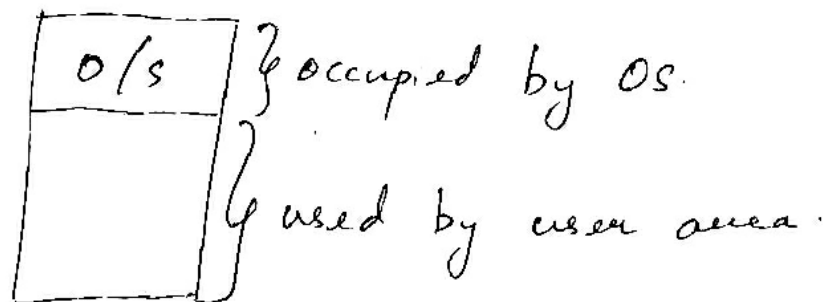 O/S
occupied by OS.
used by user area.